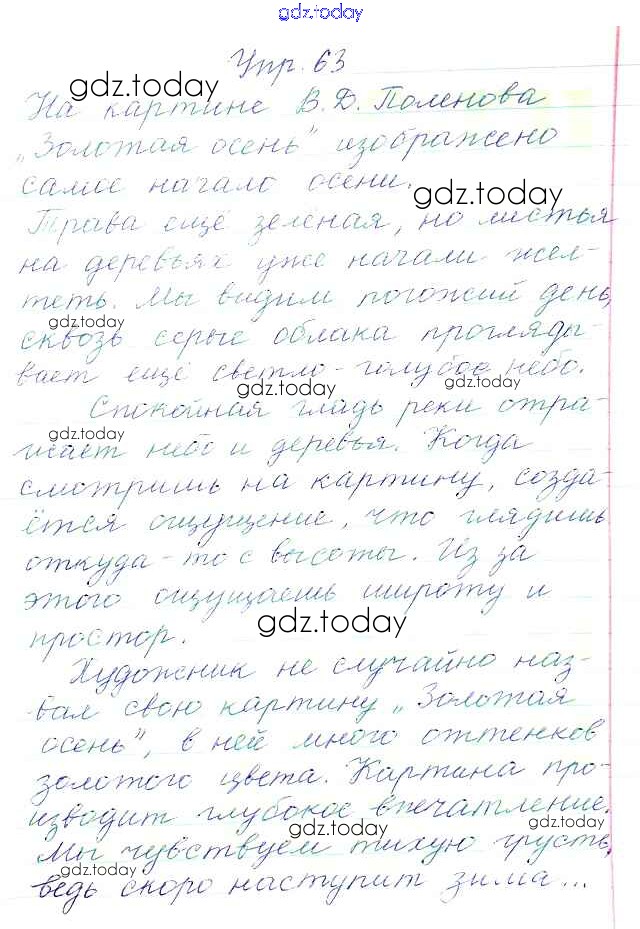 gdz.today
Упр. 63
gdz.today
На картине В.Д. Поленова
„Золотая осень" изображено
самое начало осени.
gdz.today
Трава ещё зелёная, но листья
на деревьях уже начали жел-
теть. Мы видим погожий день,
gdz.today
сквозь серые облака прогляды-
вает ещё светло-голубое небо.
gdz.today
gdz.today
Спокойная гладь реки отра-
gdz.today
жает небо и деревья. Когда
смотришь на картину, созда-
ётся ощущение, что глядишь
откуда-то с высоты. Из за
этого ощущаешь широту и
gdz.today
простор.
Художник не случайно наз-
вал свою картину „Золотая
осень", в ней много оттенков
золотого цвета. Картина про-
изводит глубокое впечатление.
gdz.today
gdz.today
Мы чувствуем тихую грусть,
gdz.today
ведь скоро наступит зима...